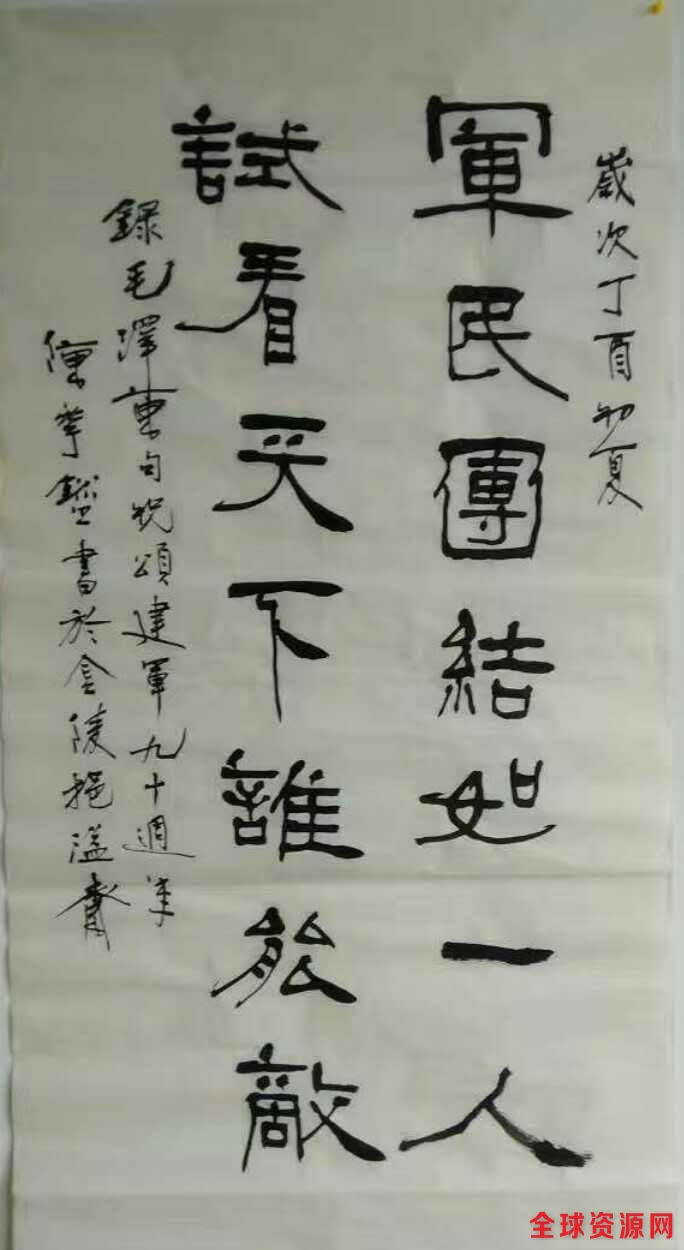 歲次丁酉初夏
軍民團結如一人
試看天下誰能敵
錄毛澤東句祝頌建軍九十週年
陳 鑑書於金陵挹溢齋
全球资源网